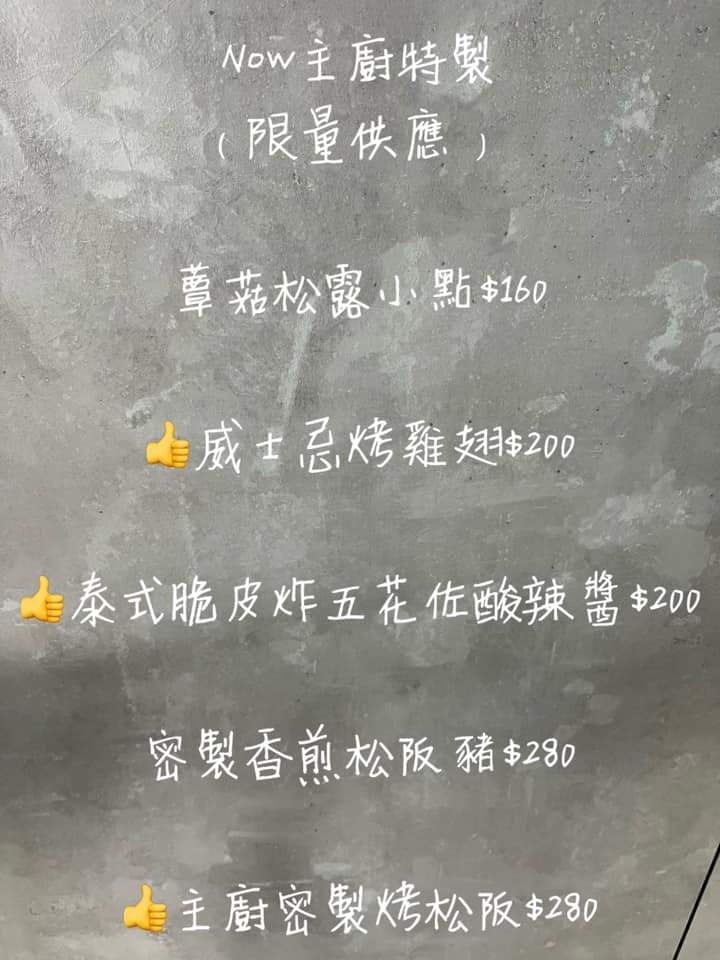 Now主廚特製
（限量供應）
蕈菇松露小點$160
👍威士忌烤雞翅$200
👍泰式脆皮炸五花佐酸辣醬$200
密製香煎松阪豬$280
👍主廚密製烤松阪$280